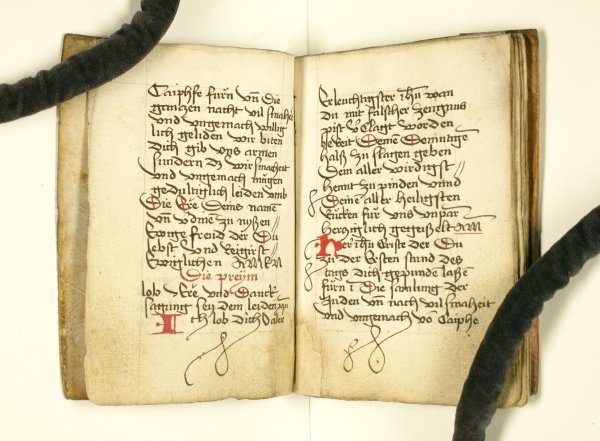 Caiphse fürn vn̄ die
gantzen nacht vil smahe
vnd vngemach willig
lich geliden wir biten
dich gib vns armen
sundern dz wir smacheit
vnd vngemach mügen
gedultiglich leiden vmb
die Ere deins namē
vnd
Ewige freid der du
lebst vnd regirst
Ewiglichen AMEN
Die preym
lob Ere vnd danck
sagung sey dem leiden
Ich lob dich aller
Erleuchtigster ihū wan
du mit falscher zeugnus
pist v̄clagt worden
bereit deine demütige
halß zu slagen geben
dein aller wirdigst
hennt zu pinden vnnd
deine aller heiligsten
rücken für vns vnpar
hertziglich gegeißelt AM
Her ihū Criste der du
zu der Ersten stund des
tags dich gepunden laßē
fürn ī die samlung der
Juden vn̄ nach vil smaheit
vnd vngemach vō Caiphe